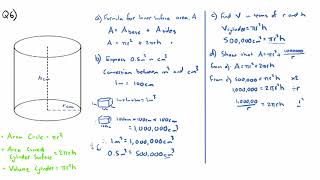 Q6)
h cm
r cm
• Area Circle = πr²
• Area Curved Cylinder Surface = 2πrh
• Volume Cylinder = πr²h
a) Formula for Inner Surface Area, A
A = A base + A sides
A = πr² + 2πrh
b) Express 0.5m³ in cm³
Conversion between m³ and cm³
1m = 100cm
100cm x 100cm x 100cm = 1m³
= 1,000,000cm³
∴ 1m³ = 1,000,000cm³
0.5m³ = 500,000cm³
c) Find V in terms of r and h
V cylinder = πr²h
500,000cm³ = πr²h
d) Show that A = πr² + 1000000/r
From a) A = πr² + 2πrh
From c) 500,000 = πr²h x2
1,000,000 = 2πr²h
1,000,000/r = 2πrh